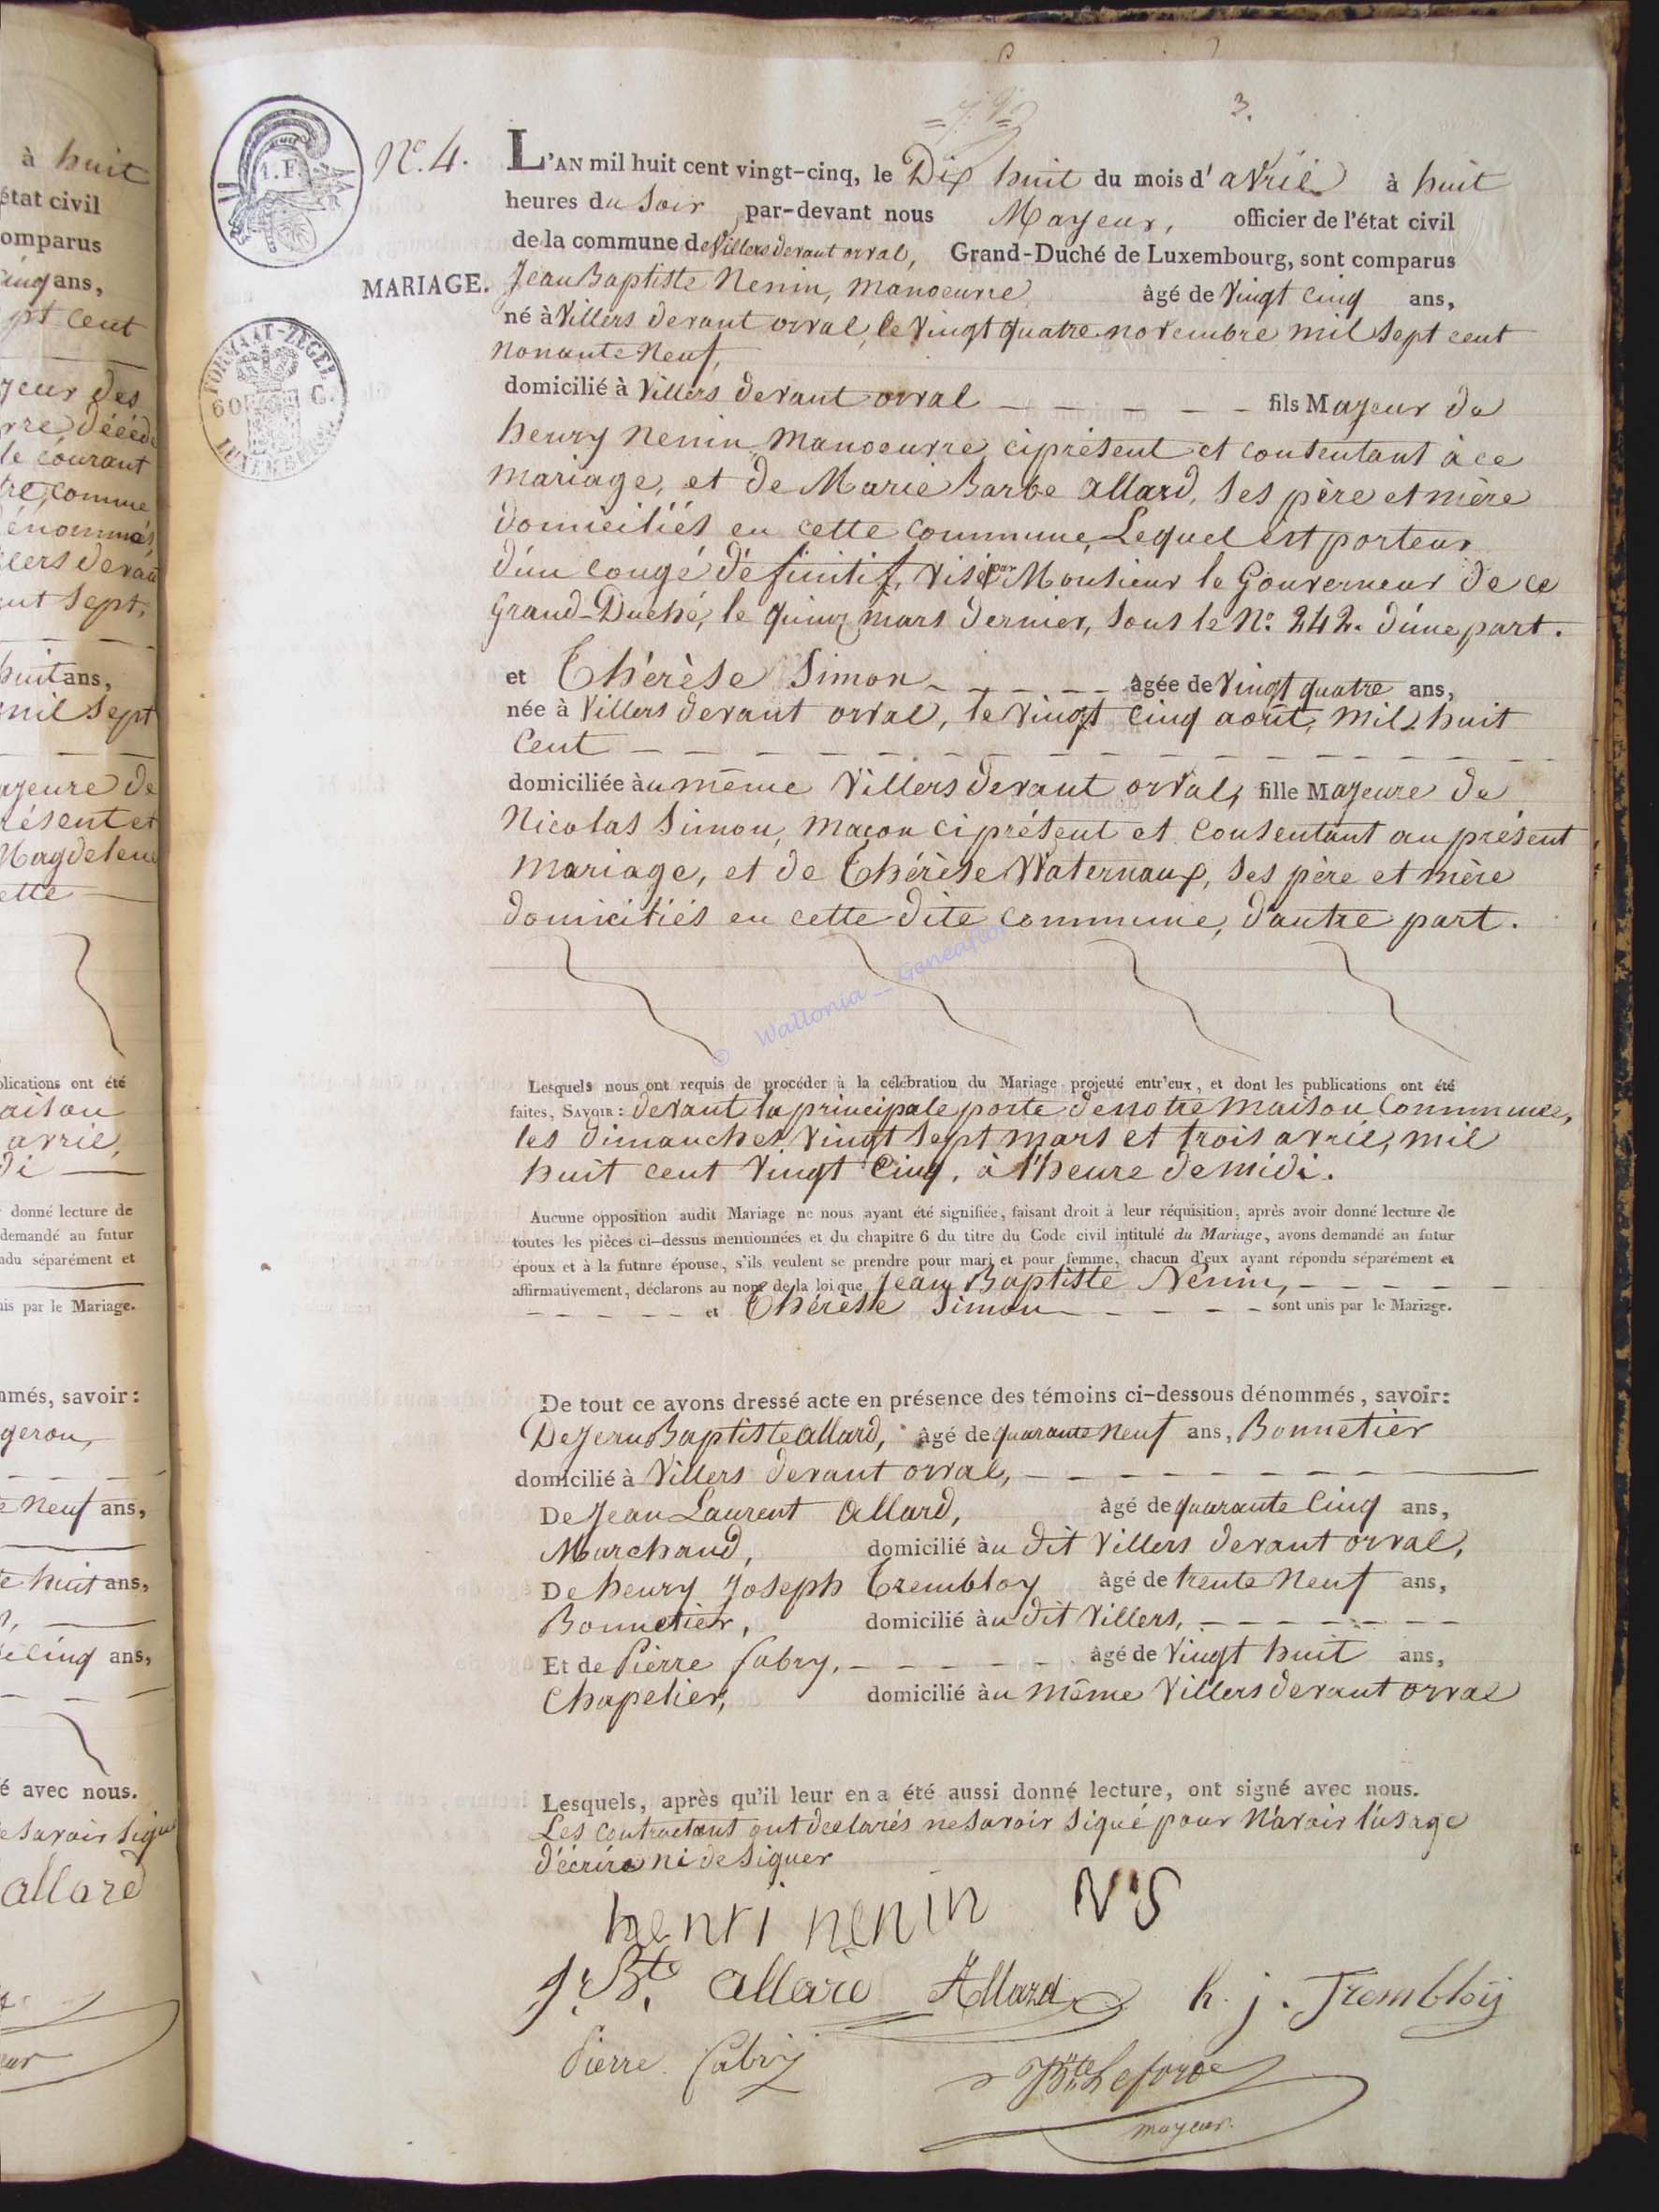 à huit
état civil
omparus
cinq ans,
pt cent
yeur des
le courant
tre, comme
dénommés
ent sept,
huit ans,
mil sept
ajeure de
résent et
Magdelene
ette
blications ont été
aison
avril,
di
donné lecture de
demandé au futur
ndu séparément et
nis par le Mariage.
mmés, savoir :
geron,
e neuf ans,
e huit ans,
e cinq ans,
é avec nous.
e savoir signé
allard
3.
1. F.
N.º 4.
L'AN mil huit cent vingt-cinq, le Dix huit du mois d'avril à huit
heures du soir par-devant nous Mayeur, officier de l'état civil
de la commune de Villers devant orval, Grand-Duché de Luxembourg, sont comparus
MARIAGE.
Jean Baptiste Nenin, manoeuvre âgé de Vingt cinq ans,
né à Villers devant orval, le vingt quatre novembre mil sept cent
nonante neuf,
FORMAAT-ZEGEL
60 C.
LUXEMBURG
domicilié à Villers devant orval fils Majeur de
henry Nenin manoeuvre, ci présent et consentant à ce
mariage, et de Marie Barbe allard, ses père et mère
domiciliés en cette commune, Lequel est porteur
d'un congé définitif, visé par Monsieur le Gouverneur de ce
Grand-Duché, le quinz mars dernier, sous le N.º 242. d'une part.
et Thérèse Simon âgée de Vingt quatre ans,
née à Villers devant orval, le vingt cinq août, mil huit
cent
domiciliée à u même Villers devant orval, fille Majeure de
Nicolas Simon, maçon ci présent et consentant au présent
mariage, et de Thérèse Waternaux, ses père et mère
domiciliés en cette dite commune, d'autre part.
© Wallonia_Geneafor
Lesquels nous ont requis de procéder à la célébration du Mariage projetté entr'eux, et dont les publications ont été
faites, SAVOIR : devant la principale porte de notre maison Commune,
les dimanches vingt sept mars et trois avril, mil
huit cent vingt cinq, à l'heure de midi.
Aucune opposition audit Mariage ne nous ayant été signifiée, faisant droit à leur réquisition, après avoir donné lecture de
toutes les pièces ci-dessus mentionnées et du chapitre 6 du titre du Code civil intitulé du Mariage, avons demandé au futur
époux et à la future épouse, s'ils veulent se prendre pour mari et pour femme, chacun d'eux ayant répondu séparément et
affirmativement, déclarons au nom de la loi que Jean Baptiste Nenin,
et Thérèse Simon sont unis par le Mariage.
De tout ce avons dressé acte en présence des témoins ci-dessous dénommés, savoir :
De Jean Baptiste allard, âgé de quarante neuf ans, Bonnetier
domicilié à Villers devant orval,
De Jean Laurent allard, âgé de quarante Cinq ans,
Marchand, domicilié à u dit Villers devant orval,
De henry Joseph Trembloy âgé de trente neuf ans,
Bonnetier, domicilié à u dit Villers,
Et de Pierre fabry, âgé de Vingt huit ans,
Chapelier, domicilié à u même Villers devant orval
Lesquels, après qu'il leur en a été aussi donné lecture, ont signé avec nous.
Les contractant ont declarés ne savoir signé pour n'avoir l'usage
d'écrire ni de signer
henri nenin N S
J. Bte. allard Allard h. j. Trembloÿ
Pierre fabry
Mayeur.